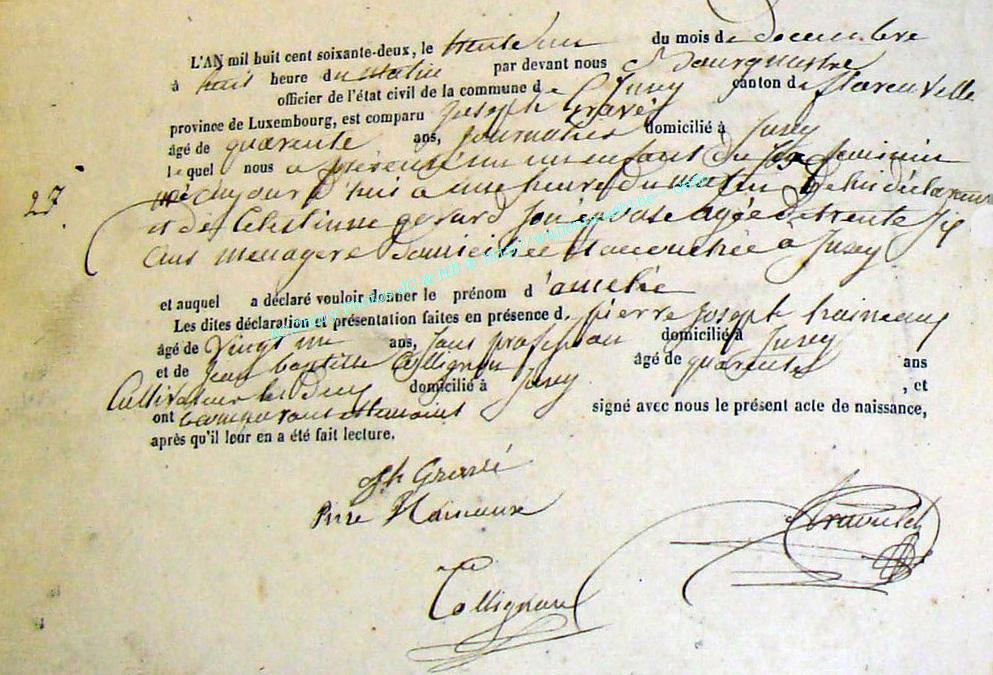 L'AN mil huit cent soixante-deux, le trente un du mois de Decembre
à huit heure du matin par devant nous Bourgmestre
officier de l'état civil de la commune de Juzey canton de florenville
province de Luxembourg, est comparu joseph Gravé
âgé de quarente ans, journalier domicilié à Jusey
lequel nous a présenté un enfant du sexe feminin
né aujourd'huis à une heure du matin de lui déclarant
et de Celestinne gerard son épouse agée de trente six
ans menagere domiciliée et accouchée à Jusey
et auquel a déclaré vouloir donner le prénom d'amelie
Les dites déclaration et présentation faites en présence d. pierre joseph haineaux
âgé de vingt un ans, sans profession domicilié à Jusey
et de jean baptiste Collignon âgé de quarente ans
Cultivateur les deux domicilié à Jusey , et
ont comparant et temoins signé avec nous le présent acte de naissance,
après qu'il leur en a été fait lecture.
27
Jh Gravé
Pirre Hainaux
Collignon